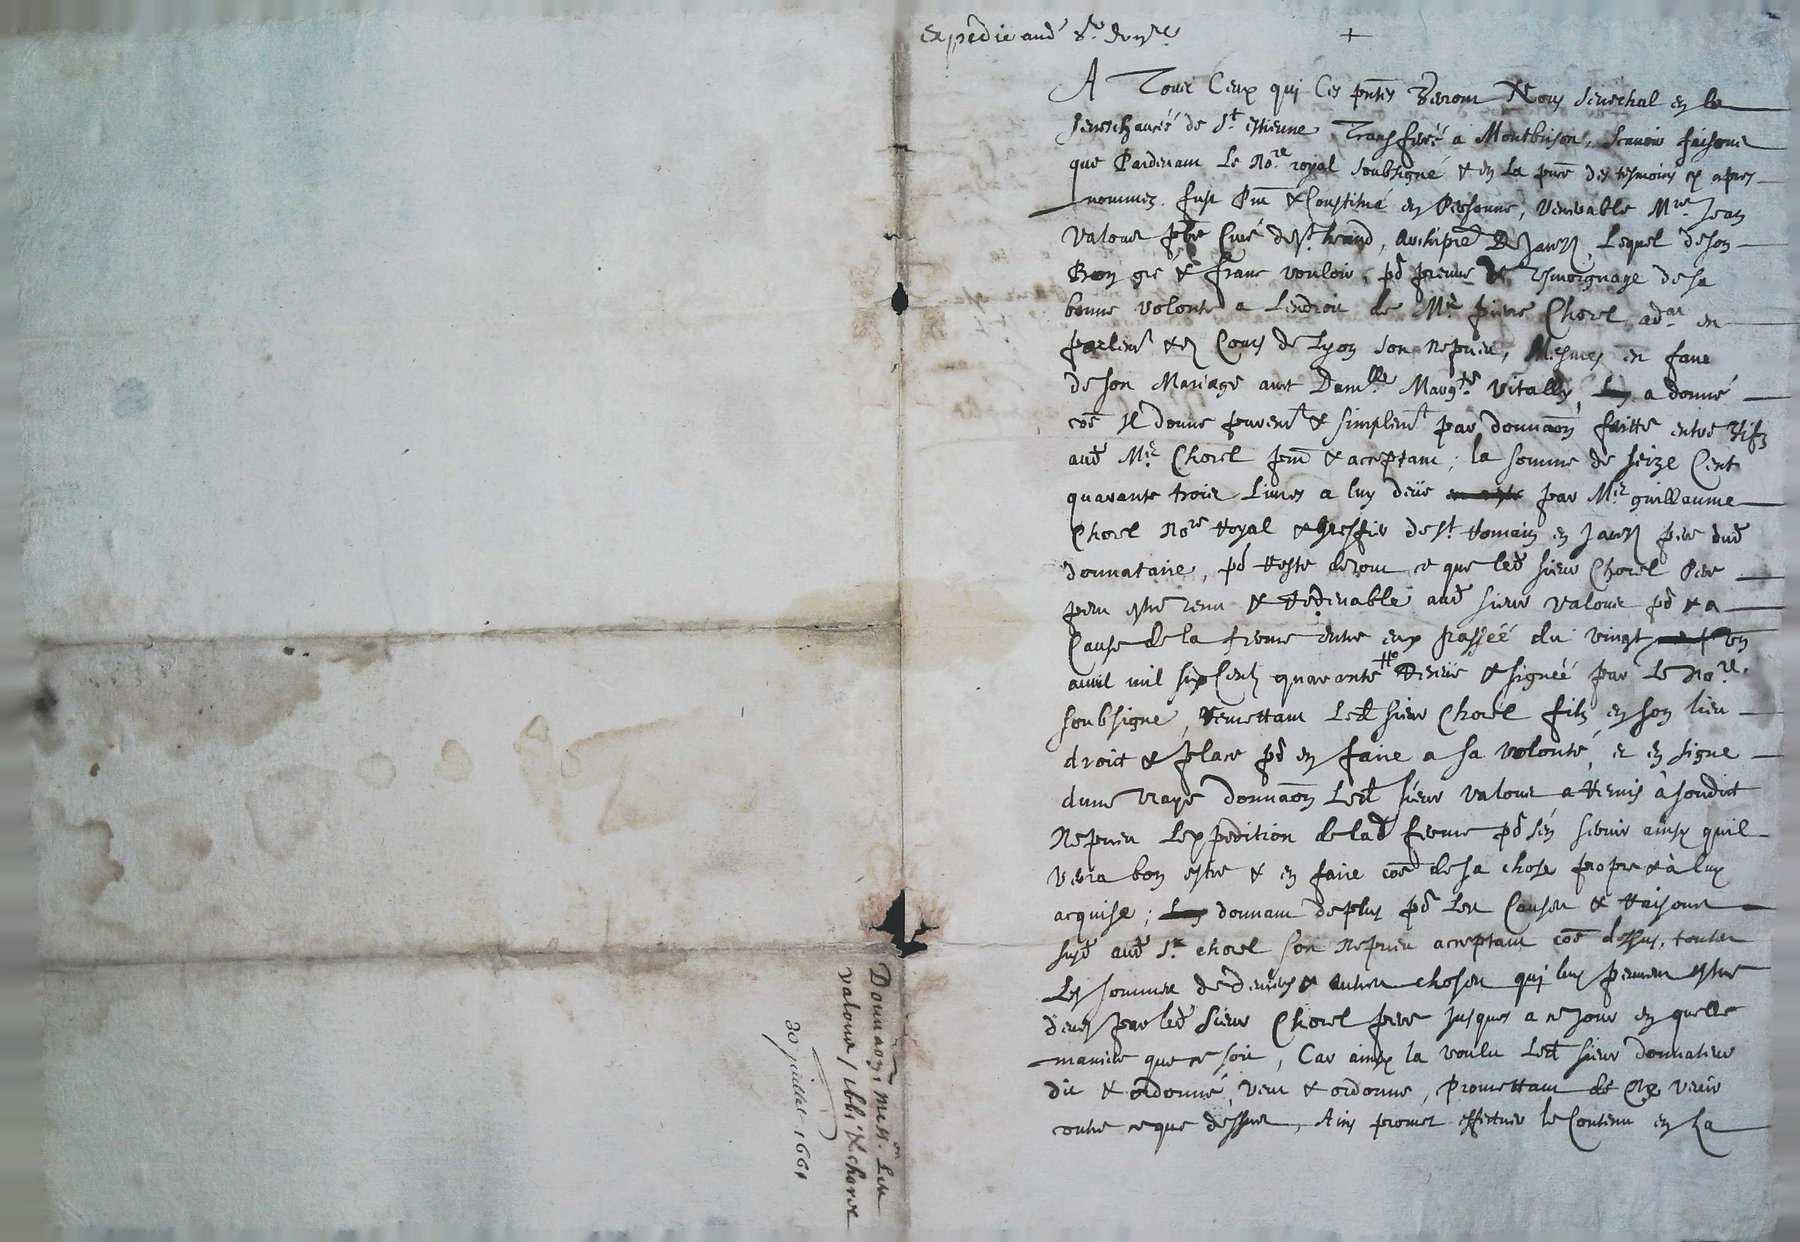 expedié aud sr donre
+
A Tous Ceux qui Ces pntes verront Nous Seneschal en la
seneschaucée de St estienne Transferée a Montbrison, scavoir faisons
que Pardevant Le nore royal soubsigné & en La pnce des tesmoins cy apres
nommez. fust Pnt & Constitué en Personne, Venerable Mre Jean
Valous pbre Curé de St heand, Archiprê de Jarez, Lequel de son
Bon gré & franc vouloir, pd preuve & tesmoignage de sa
bonne volonté a Lendroit de Me pierre Chorel adat en
parlemt & es Cours de Lyon son Nepveu, Mesmes en faveur
de son Mariage avec Damlle Margte Vitally, a donné
coe Il donne puremt & simplemt par donnaon faitte entre vifz
aud Mre Chorel pnt & acceptant, la somme de seize Cent
quarante trois Livres a luy deüe par Mre guillaume
Chorel Nore Royal & Greffier de St Romain en Jarez pere dud
donnataire, pd Reste de tout ce que led sieur Chorel Pere
peut estre tenu & Redevable aud sieur Valous pd & a
Cause de la ferme entre eux passéé du vingt un
avril mil six Centz quarante Receüe & signéé par Le Nore
soubsigne, Remettant Led sieur Chorel filz en son lieu
droict & place pd en faire a sa volonté, et en signe
dune vraye donnaon Led sieur Valous a Remis à sondict
Nepveu Lexpedition de lad ferme pd sen servir ainsy quil
verra bon estre & en faire coe de sa chose propre & à luy
acquise; donnant de plus pd Les Causes & Raisons
susd aud Sr chorel son Nepveu acceptant coe dessus, toutes
Les sommes de deniers & autres choses qui luy peuvent estre
deues par led sieur Chorel pere jusques a ce jour en quelle
maniere que ce soit, Car ainsy la voulu Led sieur donnateur
dit & ordonné, veut & ordonne, Promettant de Ne venir
contre ce que dessus, Ains promet effectuer le Contenu en sa
Donnaon, Mess. Les
Valous / & chorel
30 juillet 1661